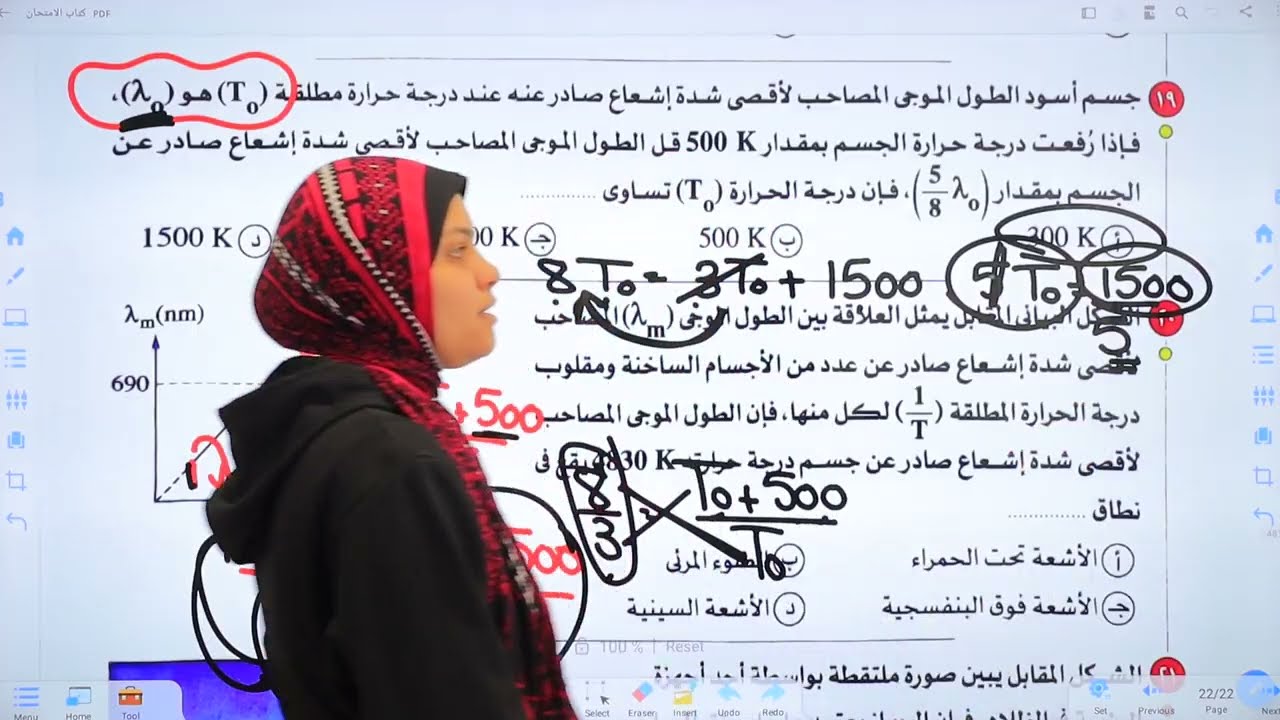 PDF كتاب الامتحان
١٩ جسم أسود الطول الموجى المصاحب لأقصى شدة إشعاع صادر عنه عند درجة حرارة مطلقة (T₀) هو (λ₀)،
فإذا رُفعت درجة حرارة الجسم بمقدار 500 K قل الطول الموجى المصاحب لأقصى شدة إشعاع صادر عن
الجسم بمقدار (5/8 λ₀)، فإن درجة الحرارة (T₀) تساوى ............
أ 300 K
ب 500 K
ج 00 K
د 1500 K
8 T₀ = 3T₀ + 1500
T₀ = 1500
5
٢٠ الشكل البيانى المقابل يمثل العلاقة بين الطول الموجى (λm) المصاحب
لأقصى شدة إشعاع صادر عن عدد من الأجسام الساخنة ومقلوب
درجة الحرارة المطلقة (1/T) لكل منها، فإن الطول الموجى المصاحب
لأقصى شدة إشعاع صادر عن جسم درجة حرارته 830 K يقع فى
نطاق ............
أ الأشعة تحت الحمراء
ب الضوء المرئى
ج الأشعة فوق البنفسجية
د الأشعة السينية
λm(nm)
690
+ 500
8/3
T₀ + 500
T₀
500
100 % | Reset
٢١ الشكل المقابل يبين صورة ملتقطة بواسطة أحد أجهزة
Menu Home Tool Select Eraser Insert Undo Redo Set Previous 22/22 Page Next